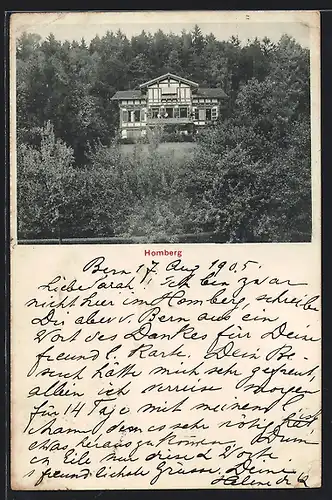 Homberg
Bern 17. Aug 1905.
Liebe Sarah! Ich bin zwar
nicht hier im Homberg, schreibe
Dir aber v. Bern aus ein
Wort des Dankes für Deine
freundl. Karte. Dein Be-
such hätte mich sehr gefreut,
allein ich verreise morgen
für 14 Tage mit meinem l.
dem es sehr nötig hat,
etwas herauszukommen. Drum
in Eile nur diese 2 Worte.
freundlichste Grüsse. Deine